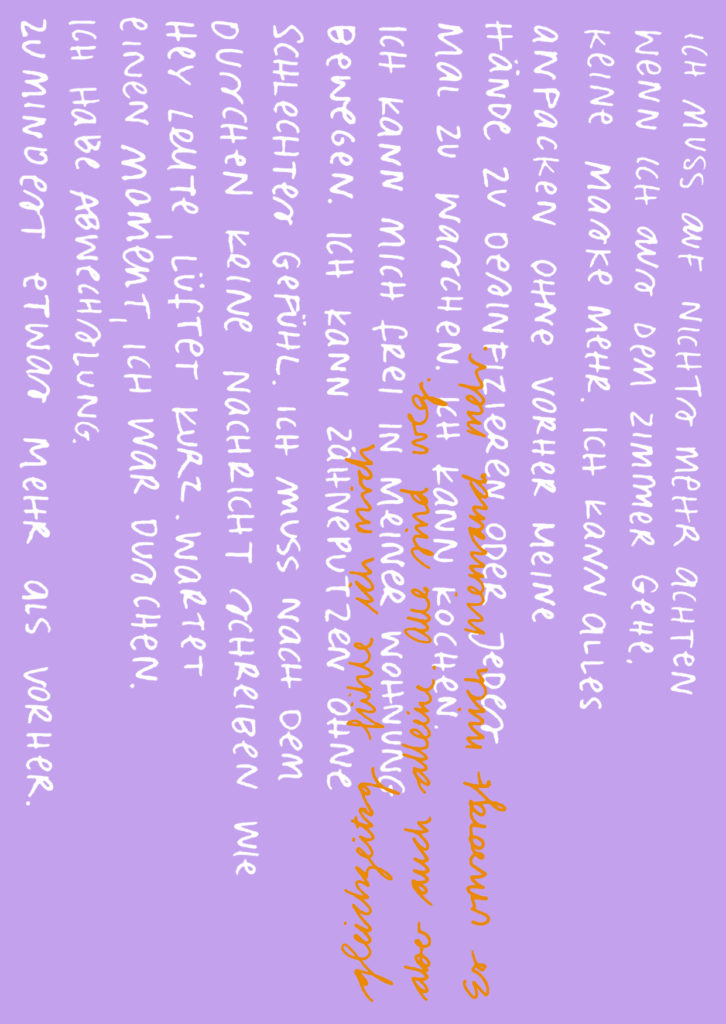 ICH MUSS AUF NICHTS MEHR ACHTEN
WENN ICH AUS DEM ZIMMER GEHE,
KEINE MASKE MEHR. ICH KANN ALLES
ANPACKEN OHNE VORHER MEINE
HÄNDE ZU DESINFIZIEREN ODER JEDES
MAL ZU WASCHEN. ICH KANN KOCHEN.
ICH KANN MICH FREI IN MEINER WOHNUNG
BEWEGEN. ICH KANN ZÄHNEPUTZEN OHNE
SCHLECHTES GEFÜHL. ICH MUSS NACH DEM
DUSCHEN KEINE NACHRICHT SCHREIBEN WIE
HEY LEUTE, LÜFTET KURZ. WARTET
EINEN MOMENT, ICH WAR DUSCHEN.
ICH HABE ABWECHSLUNG.
ZUMINDEST ETWAS MEHR ALS VORHER.
gleichzeitig fühle ich mich
aber auch alleine. alle sind weg.
Es umsorgt mich niemand mehr.